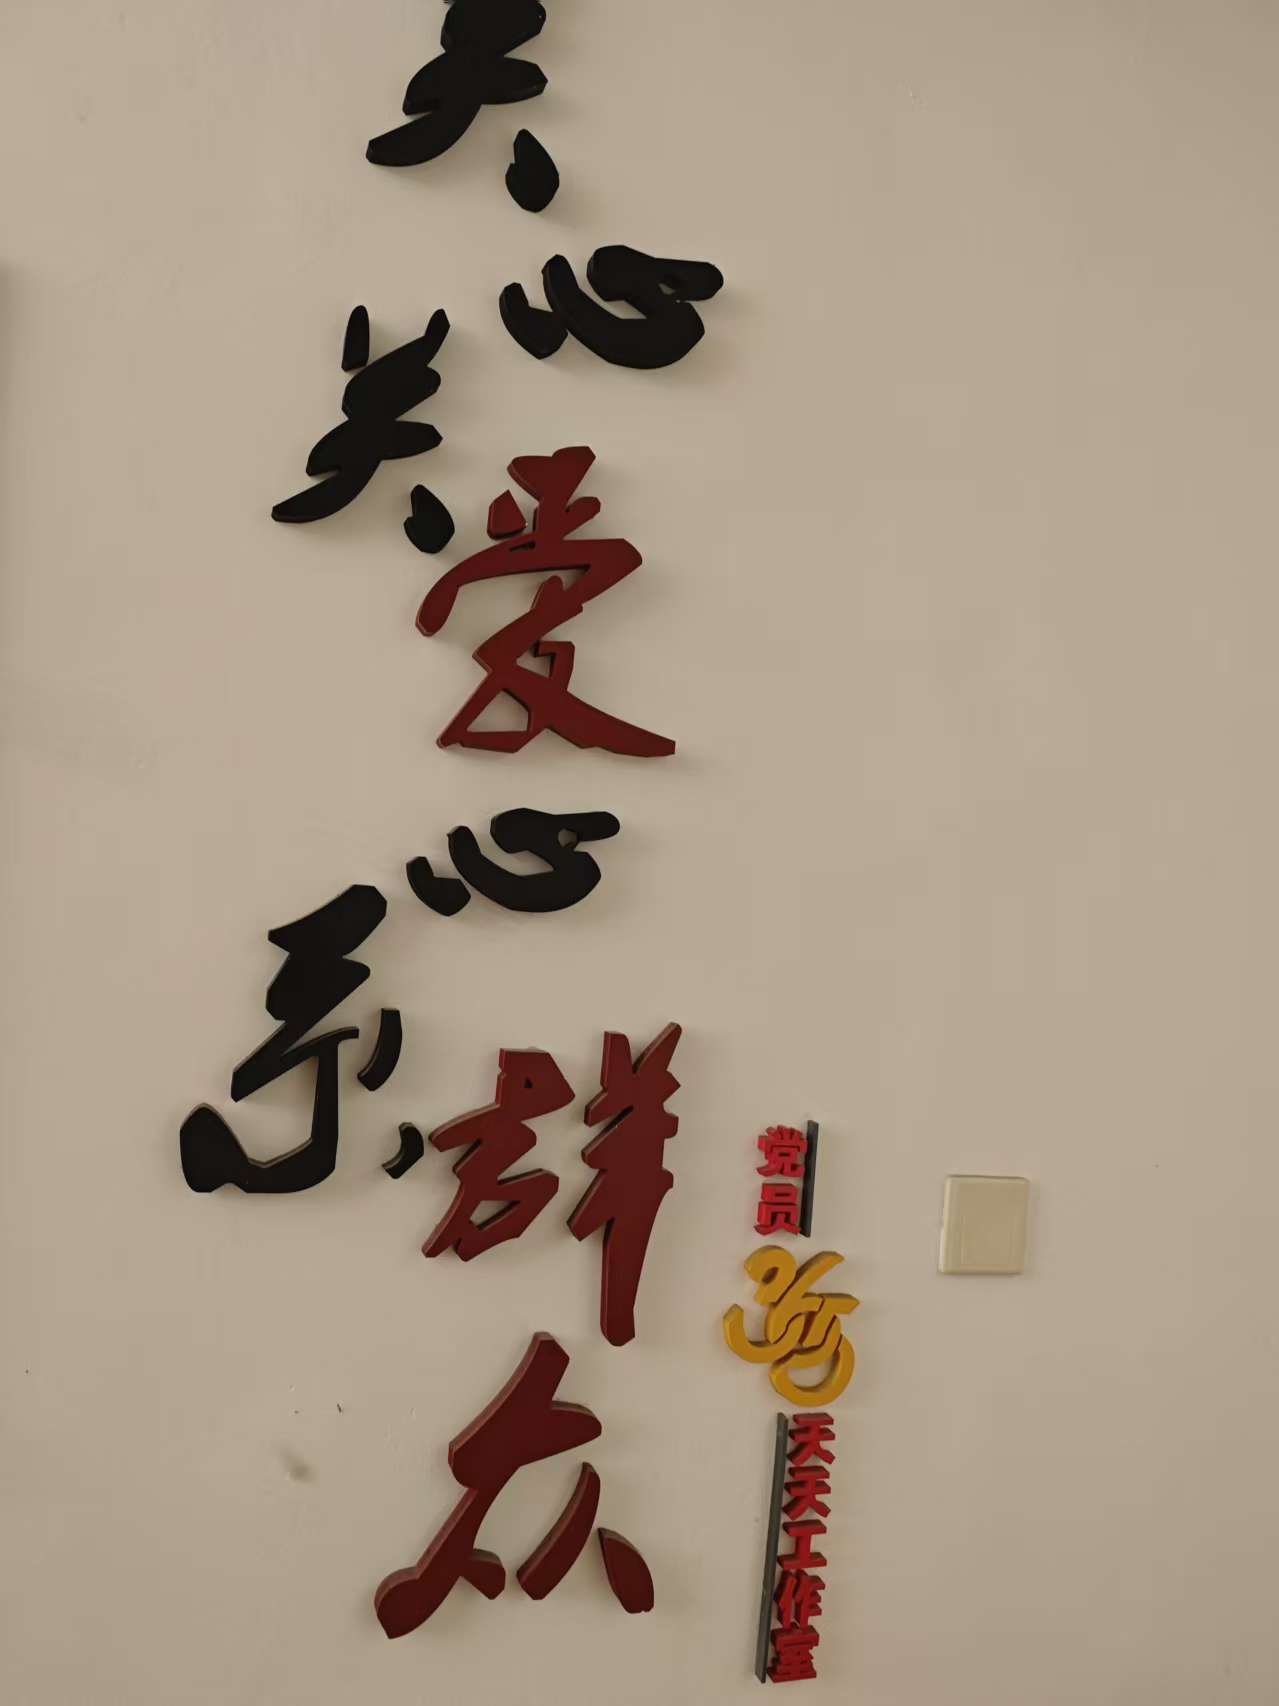 关心
关爱
心系
群众
党员
365
天天工作室